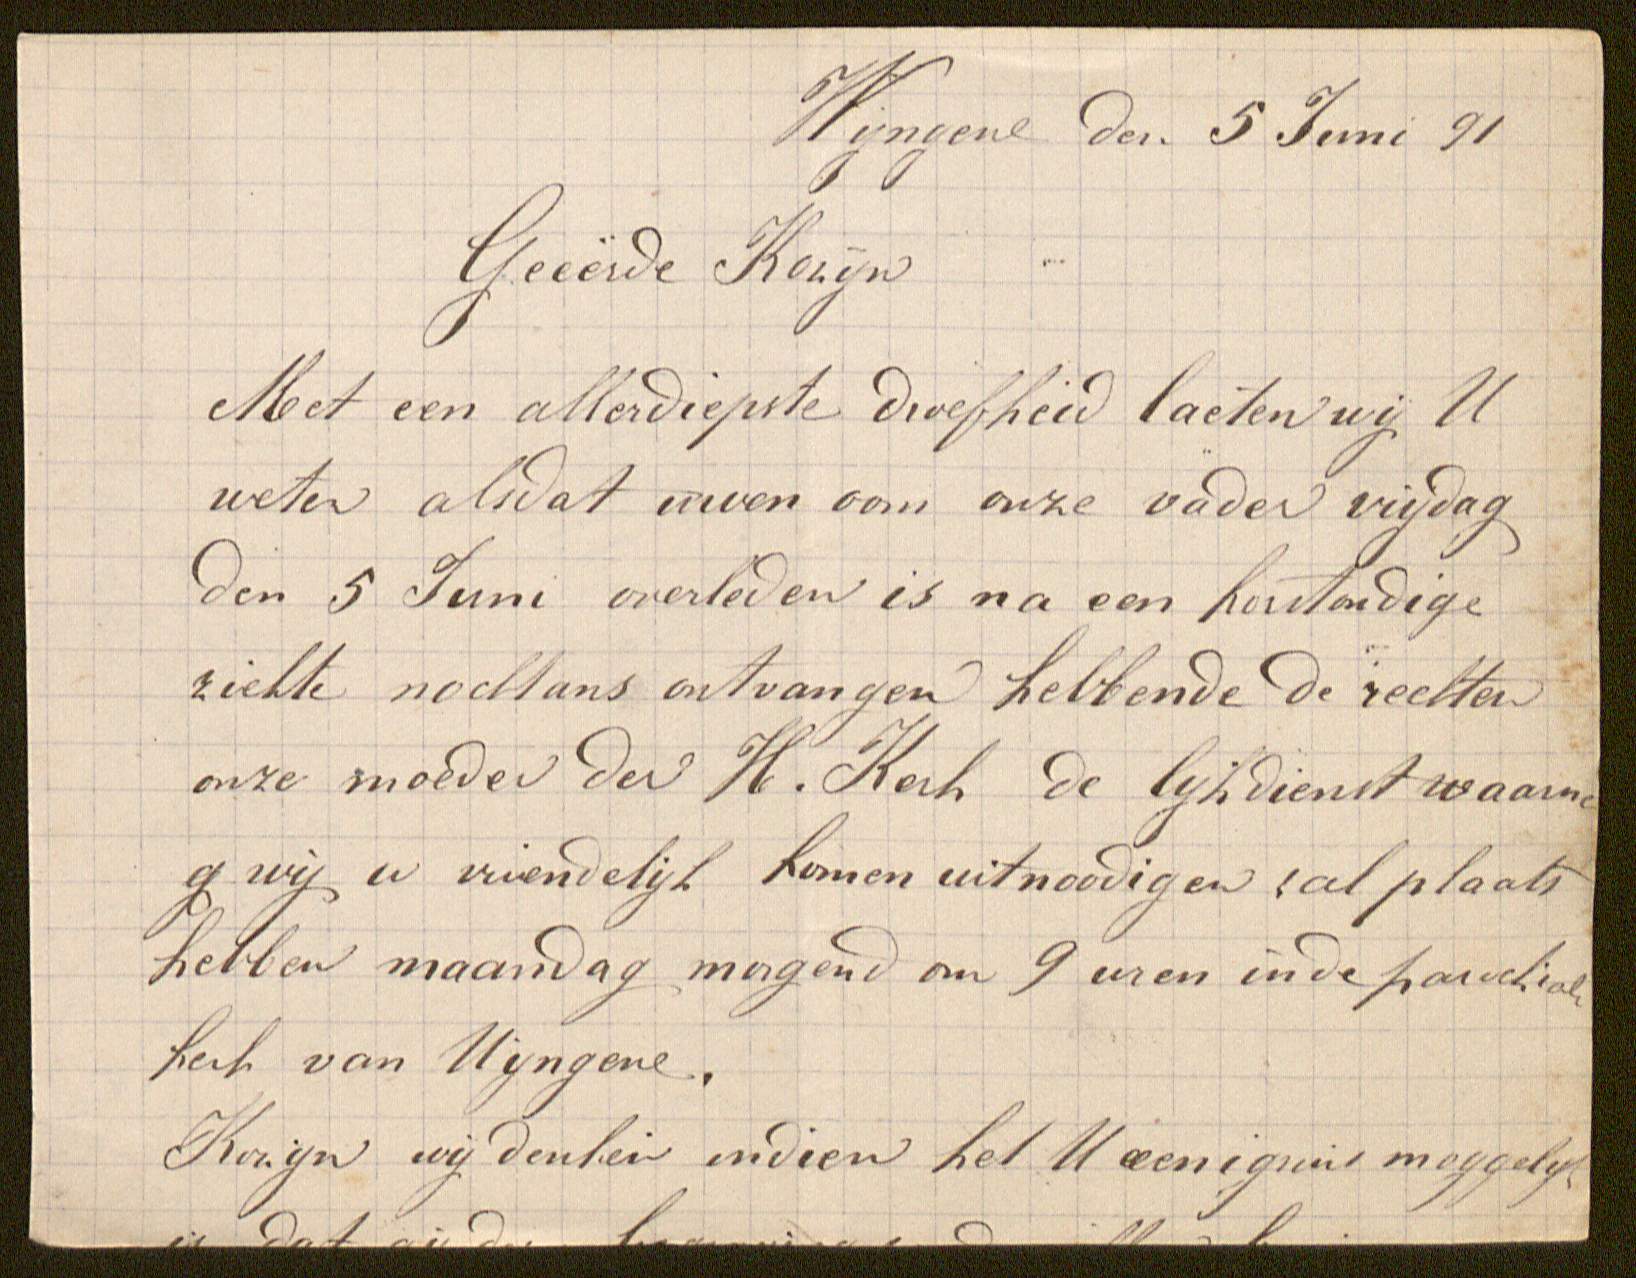 Wyngene den 5 Juni 91
Geëerde Kozyn
Met een allerdiepste droefheid laeten wij U
weten alsdat uwen oom onze vader vrijdag
den 5 Juni overleden is na een kortstondige
ziekte nochtans ontvangen hebbende de rechten
onze moeder der H. Kerk de lijkdienst waarne
g wij u vriendelijk komen uitnoodigen zal plaats
hebben maandag morgend om 9 uren in de parochiale
kerk van Wyngene.
Kozyn wij denken indien het U eenigsins moggelijk
is dat gij